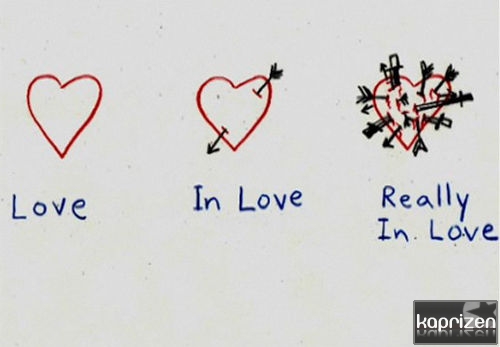 Love
In Love
Really
In Love
kaprizen